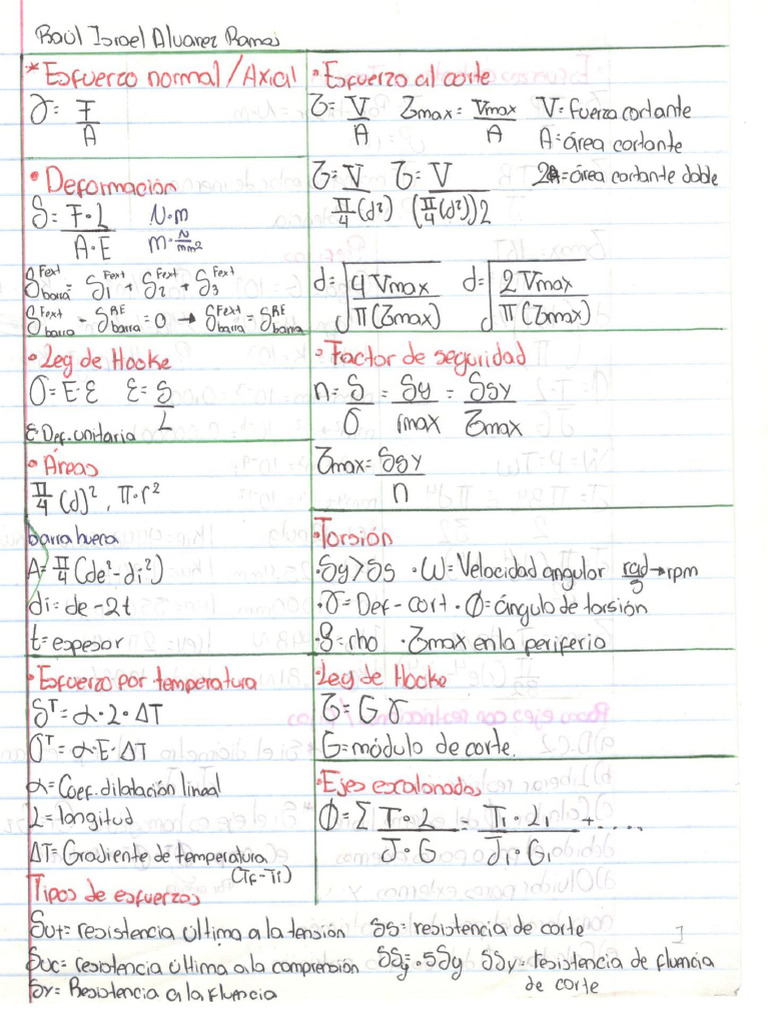 Raúl Israel Alvarez Ramos
*Esfuerzo normal/Axial
σ = F/A
• Deformación
δ = F·L / A·E   N·m / m·N/mm²
δbarra^Fext = δ1^Fext + δ2^Fext + δ3^Fext
δbarra^Fext - δbarra^RE = 0 → δbarra^Fext = δbarra^RE
• Ley de Hooke
σ = E·ε   ε = δ/L
ε Def. unitaria
• Áreas
π/4 (d)², π·r²
barra hueca
A = π/4 (de² - di²)
di = de - 2t
t = espesor
• Esfuerzo por temperatura
δ^T = α·L·ΔT
σ^T = α·E·ΔT
α = Coef. dilatación lineal
L = longitud
ΔT = Gradiente de temperatura
(Tf - Ti)
• Esfuerzo al corte
τ = V/A   τmax = Vmax/A   V = fuerza cortante
A = área cortante
τ = V / π/4 (d²)   τ = V / (π/4 (d²))2   2A = área cortante doble
d = √(4 Vmax / π(τmax))   d = √(2 Vmax / π(τmax))
• Factor de seguridad
n = S/σ = Sy/σmax = Ssy/τmax
τmax = Ssy/n
• Torsión
• Sy > Ss   • ω = Velocidad angular rad/s → rpm
• γ = Def - cort   • ϕ = ángulo de torsión
• ρ = rho   • τmax en la periferio
• Ley de Hooke
τ = G γ
G = módulo de corte.
• Ejes escalonados
ϕ = Σ T·L / J·G = T1·L1 / J1·G1 + ....
Tipos de esfuerzos
Sut = resistencia última a la tensión   Ss = resistencia de corte
Suc = resistencia última a la comprensión   SSy = .5Sy   SSy = resistencia de fluencia
de corte
Sy = Resistencia a la fluencia